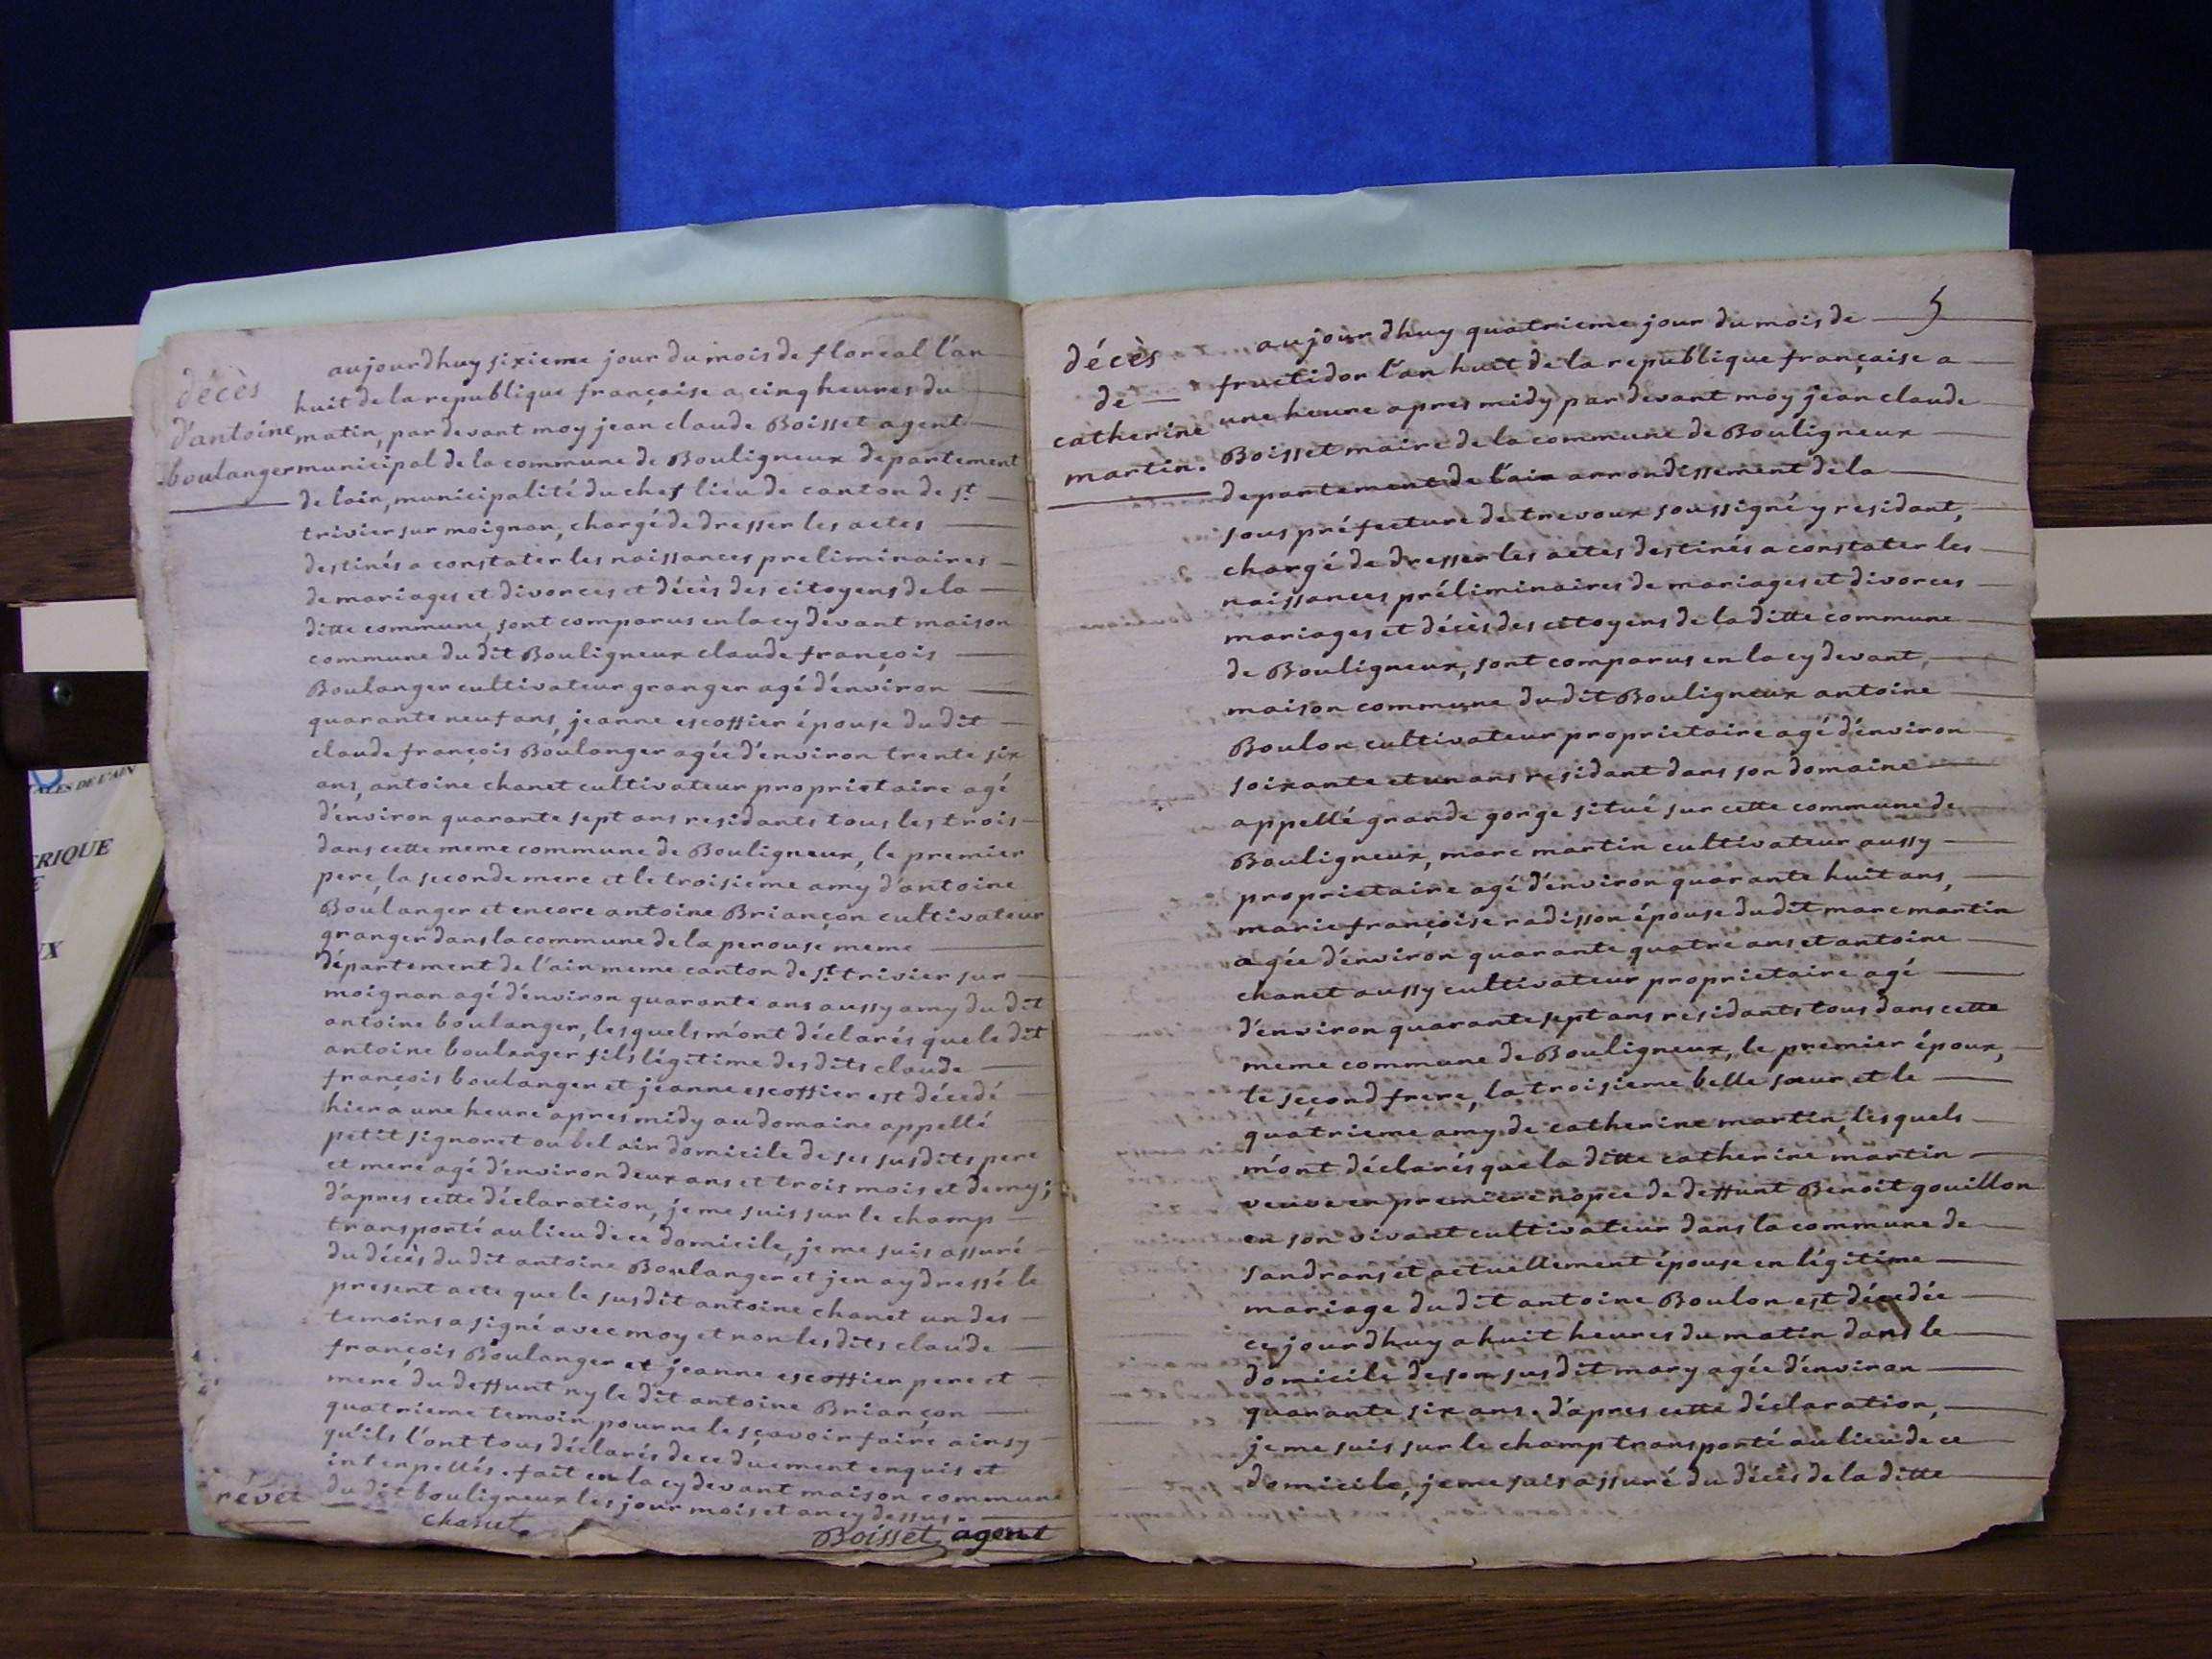 décès
d'antoine
boulanger
aujourdhuy sixieme jour du mois de floreal l'an
huit de la republique françoise a cinq heures du
matin, pardevant moy jean claude Boisset agent
municipal de la commune de Bouligneux departement
de l'ain, municipalité du chef lieu de canton de st
trivier sur moignan, chargé de dresser les actes
destinés a constater les naissances preliminaires
de mariages et divorces et décès des citoyens de la
ditte commune, sont comparus en la cy devant maison
commune du dit Bouligneux claude françois
Boulanger cultivateur granger agé d'environ
quarante neuf ans, jeanne escoffier épouse du dit
claude françois Boulanger agée d'environ trente six
ans, antoine chanet cultivateur proprietaire agé
d'environ quarante sept ans residants tous les trois
dans cette meme commune de Bouligneux, le premier
pere, la seconde mere et le troisieme amy d'antoine
Boulanger et encore antoine Briançon cultivateur
granger dans la commune de la perouse meme
département de l'ain meme canton de st trivier sur
moignan agé d'environ quarante ans aussy amy du dit
antoine boulanger, lesquels m'ont déclarés que le dit
antoine boulanger fils légitime des dits claude
françois boulanger et jeanne escoffier est décedé
hier a une heure apres midy au domaine appellé
petit signoret ou bel air domicile de ses susdits pere
et mere agé d'environ deux ans et trois mois et demy;
d'apres cette déclaration, je me suis sur le champ
transporté au lieu de ce domicile, je me suis assuré
du décès du dit antoine Boulanger et jen ay dressé le
present acte que le susdit antoine chanet un des
temoins a signé avec moy et non les dits claude
françois Boulanger et jeanne escoffier pere et
mere du deffunt ny le dit antoine Briançon
quatrieme temoin pour ne le sçavoir faire ainsy
qu'ils l'ont tous déclarés de ce duement enquis et
interpellés. fait en la cy devant maison commune
du dit bouligneux les jour mois et an cy dessus.
chanet
Boisset agent
5
décès
de
catherine
martin.
aujourdhuy quatrieme jour du mois de
fructidor l'an huit de la republique française a
une heure apres midy par devant moy jean claude
Boisset maire de la commune de Bouligneux
departement de l'ain arrondissement de la
sous préfecture de trevoux soussigné y residant,
chargé de dresser les actes destinés a constater les
naissances préliminaires de mariages et divorces
mariages et décès des citoyens de la ditte commune
de Bouligneux, sont comparus en la cy devant
maison commune du dit Bouligneux antoine
Boulon cultivateur proprietaire agé d'environ
soixante et un ans residant dans son domaine
appellé grande gorge situé sur cette commune de
Bouligneux, marc martin cultivateur aussy
proprietaire agé d'environ quarante huit ans,
marie françoise radisson épouse du dit marc martin
agée d'environ quarante quatre ans et antoine
chanet aussy cultivateur proprietaire agé
d'environ quarante sept ans residants tous dans cette
meme commune de Bouligneux, le premier époux,
le second frere, la troisieme belle sœur et le
quatrieme amy de catherine martin, lesquels
m'ont déclarés que la ditte catherine martin
veuve en premiere nopce de deffunt Benoit gouillon
en son vivant cultivateur dans la commune de
sandrans et actuellement épouse en légitime
mariage du dit antoine Boulon est décedée
ce jourdhuy a huit heures du matin dans le
domicile de son susdit mary agée d'environ
quarante six ans. d'apres cette déclaration,
je me suis sur le champ transporté au lieu de ce
domicile, je me suis assuré du décès de la ditte